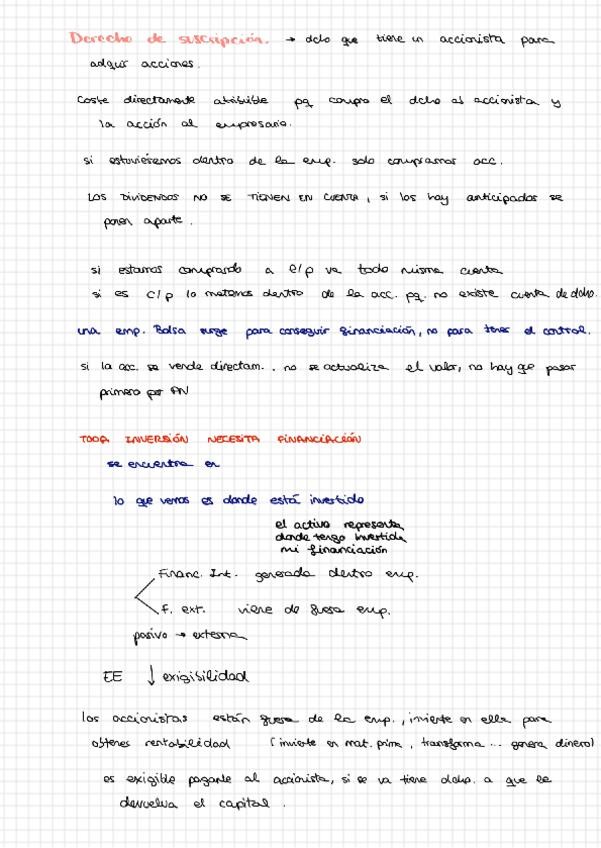 Derecho de suscripción. → dcho que tiene un accionista para
adquir acciones.
Coste directamente atribible pq compro el dcho al accionista y
la acción al empresario.
si estuviéremos dentro de la emp. solo compramos acc.
LOS DIVIDENDOS NO SE TIENEN EN CUENTA, si los hay anticipados se
ponen aparte.
si estamos comprando a l/p va todo misma cuenta
si es c/p lo metemos dentro de la acc. pq. no existe cuenta de dcho.
una emp. Bolsa surge para conseguir financiación, no para tener el control.
si la acc. se vende directam.. no se actualiza el valor, no hay que pasar
primero por PN
TODA INVERSIÓN NECESITA FINANCIACIÓN
se encuentra en
lo que vemos es donde está invertido
el activo representa
donde tengo invertida
mi financiación
Financ. Int. generada dentro emp.
F. ext. viene de fuera emp.
pasivo → externa
EE ↓ exigibilidad
los accionistas están fuera de la emp., invierte en ella para
obtener rentabilidad (invierte en mat. prima, transforma ... genera dinero)
es exigible pagarle al accionista, si se va tiene dcho. a que le
devuelva el capital.